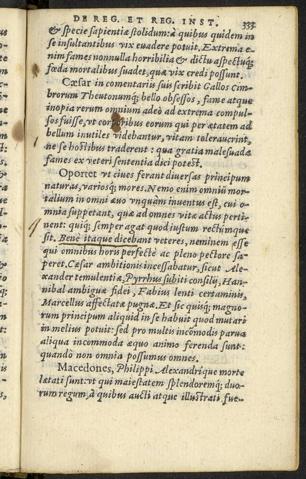 DE REG. ET REG. INST. 333
& specie sapientia stolidum: à quibus quidem in
se insultantibus vix euadere potuit. Extrema e-
nim fames nonnulla horribilia & dictu aspectuq́;
fœda mortalibus suadet, quæ vix credi possunt.
Cæsar in comentariis suis scribit Gallos Cim-
brorum Theutonumq́; bello obsessos, fame atque
inopia rerum omnium adeò ad extrema compul-
sos fuisse, vt corporibus eorum qui per ætatem ad
bellum inutiles videbantur, vitam tolerauerint,
ne se hostibus traderent: qua gratia malesuada
fames ex veteri sententia dici potest.
Oportet vt ciues ferant diuersas principum
naturas, variosq́; mores. Nemo enim omniū mor-
talium in omni æuo vnquam inuentus est, cui o-
mnia suppetant, quæ ad omnes vitæ actus perti-
nent: quiq́; semper agat quod iustum rectumque
sit. Bene itaque dicebant veteres, neminem esse
qui omnibus horis perfectè ac pleno pectore sa-
peret. Cæsar ambitionis incessabatur, sicut Ale-
xander temulentiæ, Pyrrhus subiti consilij, Han-
nibal ambiguæ fidei, Fabius lenti certaminis,
Marcellus affectatæ pugnæ. Et sic quisq́; magno-
rum principum aliquid in se habuit quod mutari
in melius potuit: sed pro multis incōmodis parua
aliqua incommoda æquo animo ferenda sunt:
quando non omnia possumus omnes.
Macedones, Philippi Alexandriq́ue morte
lætati sunt: vt qui maiestatem splendoremq́; duo-
rum regum, à quibus aucti atque illustrati fue-